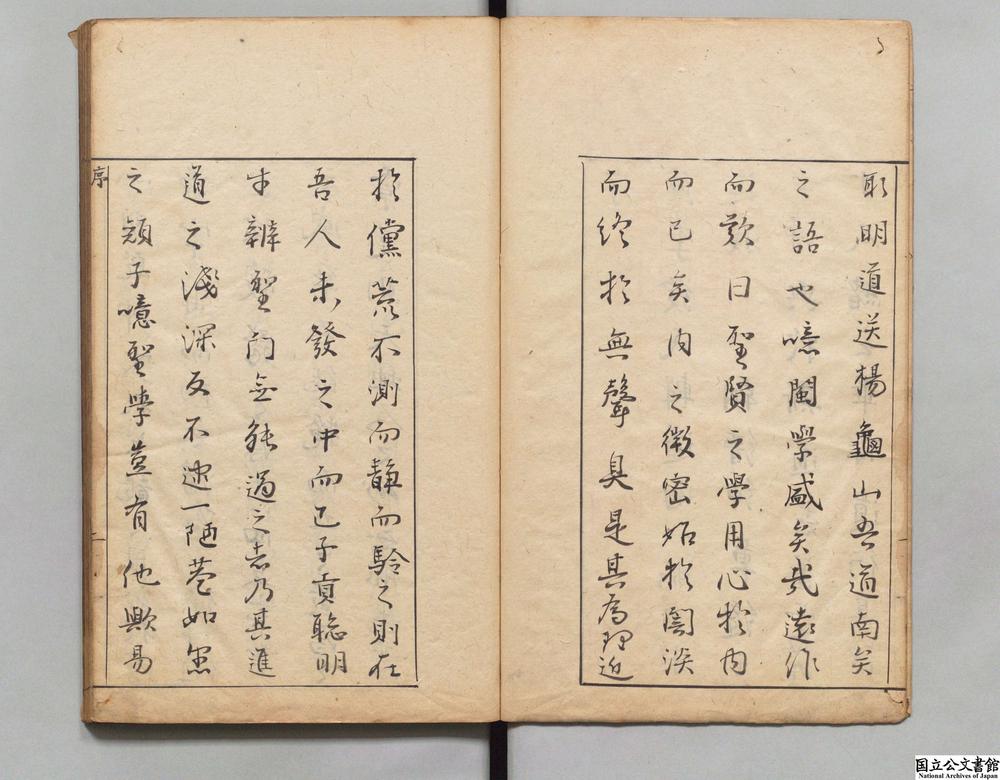 取明道送楊龜山吾道南矣
之語也噫閩學盛矣哉遠作
而歎曰聖賢之學用心於内
而已矣内之微密始於闇淡
而終於無聲臭是其為理近
於儻荒不測而静而驗之則在
吾人未發之中而已子貢聡明
才辨聖门無能過之者乃其進
道之淺深反不逮一陋巷如愚
之顔子噫聖學豈有他歟易
序
国立公文書館
National Archives of Japan